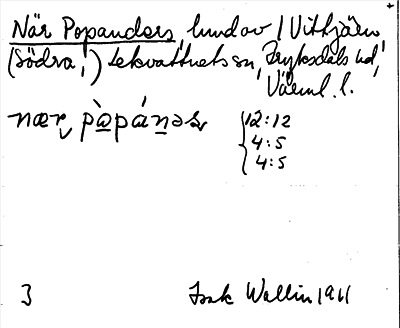 När Popanders, hmd av / Vittjärn
(Södra,) Lekvattnets sn, Fryksdals hd,
Värml. l.
12:12
4:5
4:5
3 Isak Wallin 1911